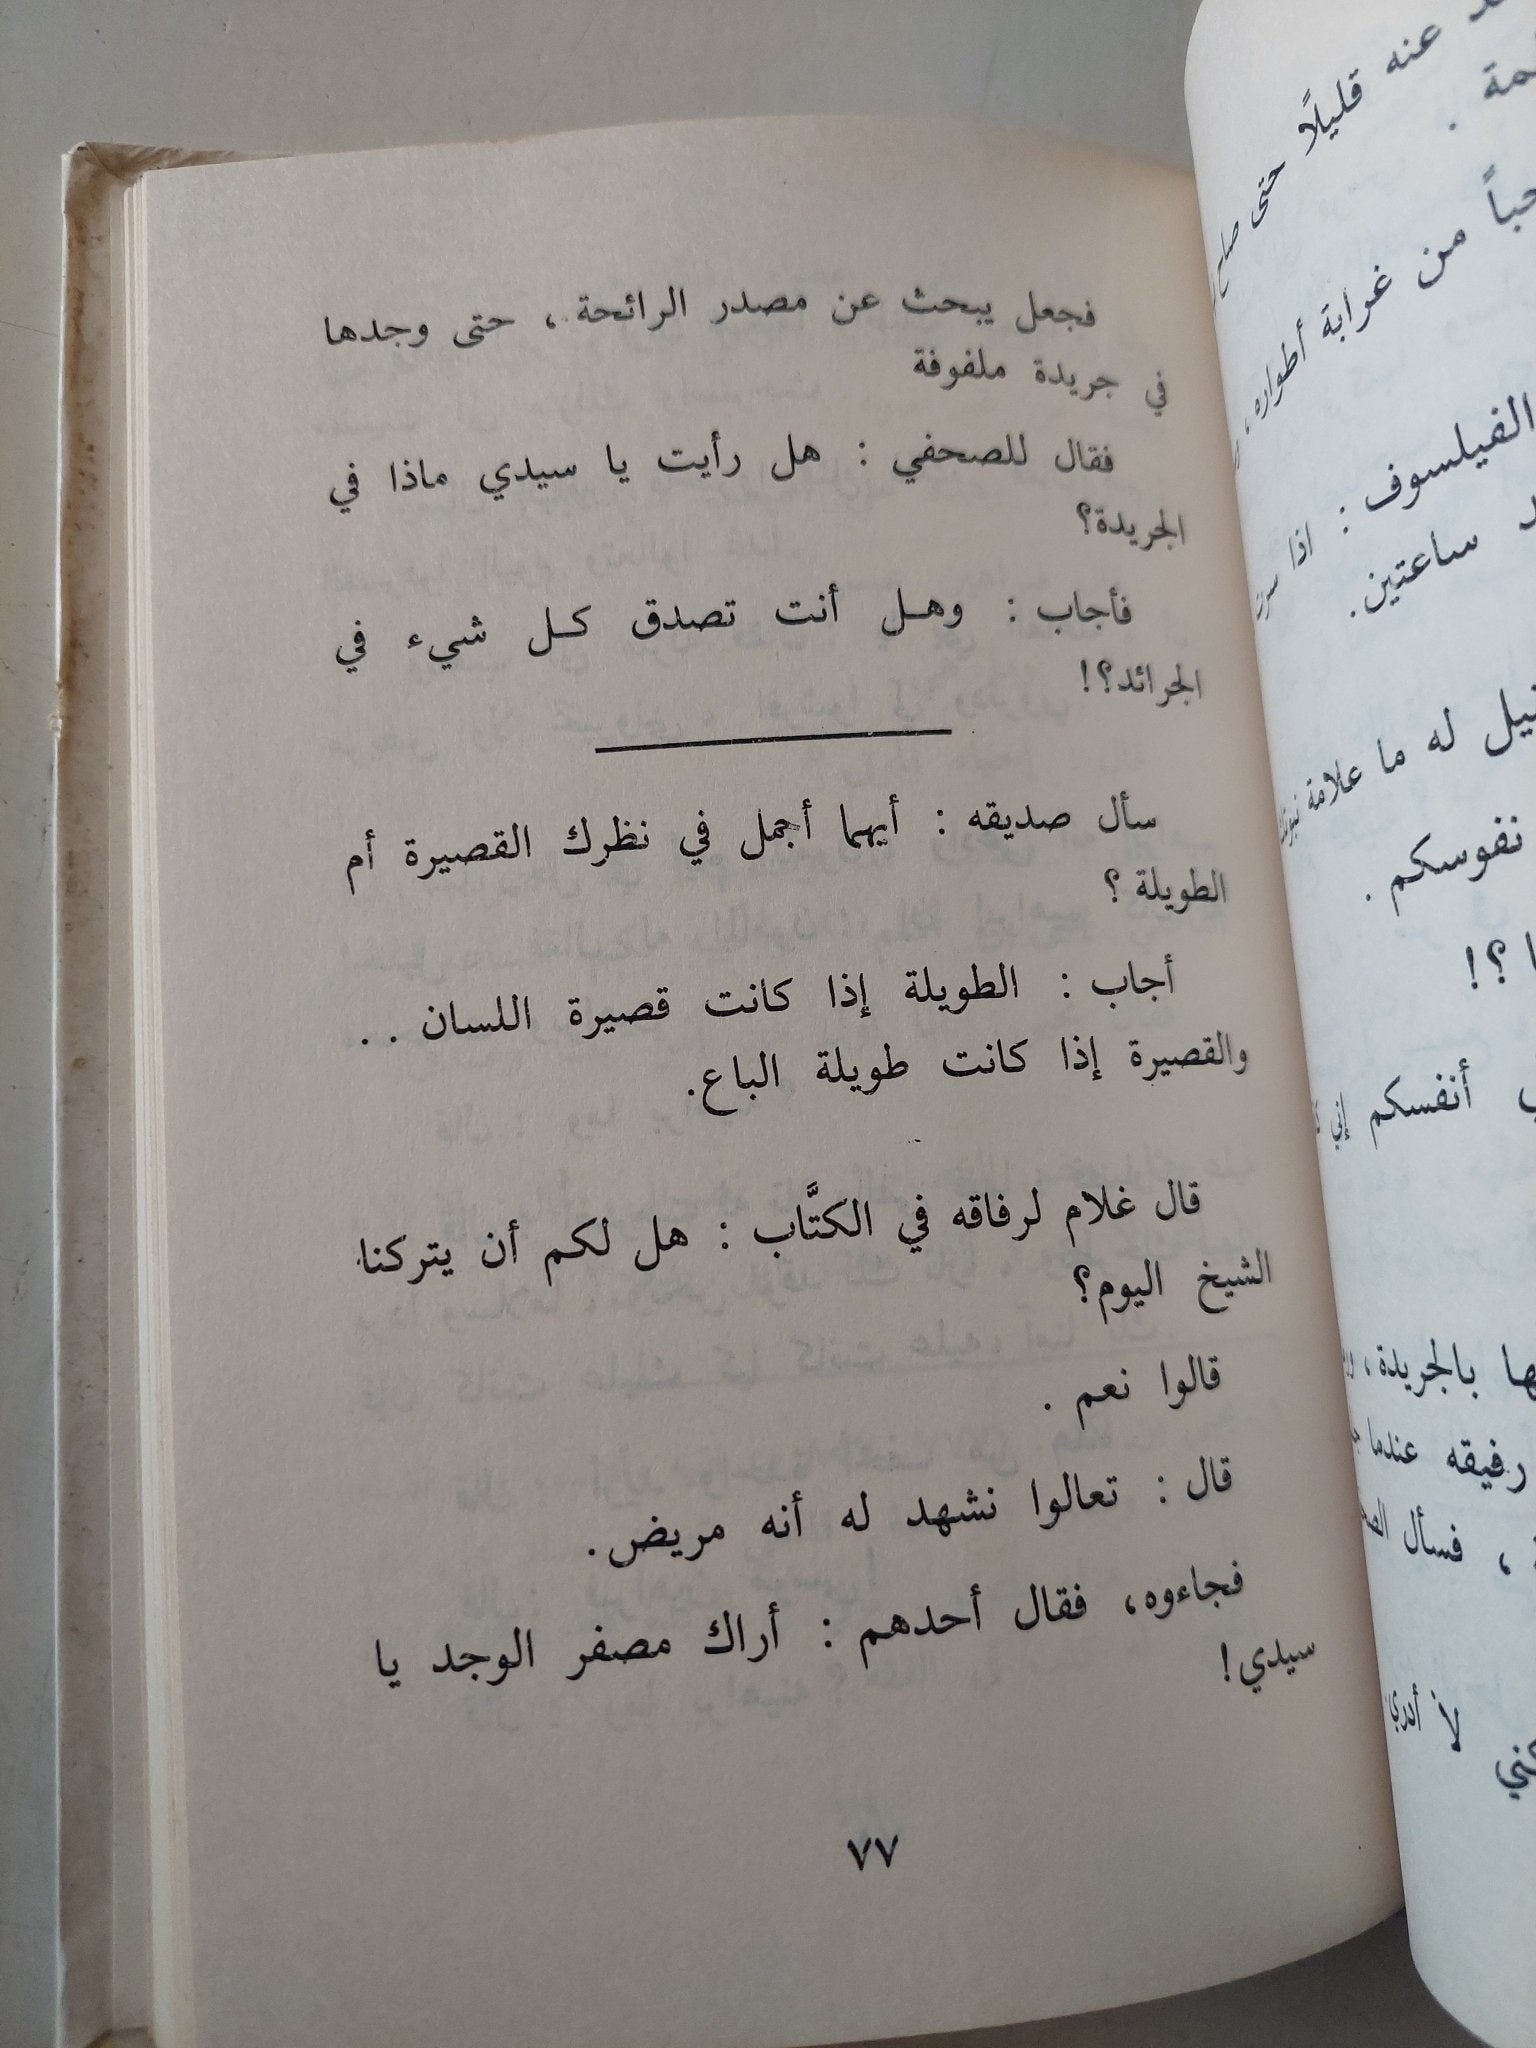 فجعل يبحث عن مصدر الرائحة ، حتى وجدها
في جريدة ملفوفة
فقال للصحفي : هل رأيت يا سيدي ماذا في
الجريدة؟
فأجاب : وهــل أنت تصدق كــل شيء في
الجرائد؟!
سأل صديقه : أيهما أجمل في نظرك القصيرة أم
الطويلة ؟
أجاب : الطويلة إذا كانت قصيرة اللسان . .
والقصيرة إذا كانت طويلة الباع.
قال غلام لرفاقه في الكتَّاب : هل لكم أن يتركنا
الشيخ اليوم؟
قالوا نعم .
قال : تعالوا نشهد له أنه مريض.
فجاءوه، فقال أحدهم : أراك مصفر الوجد يا
سيدي!
٧٧
عنه قليلًا حتى صاح
من غرابة أطواره ،
الفيلسوف : اذا سرت
ساعتين.
له ما علامة
نفوسكم .
؟!
أنفسكم إني
بالجريدة ،
رفيقه عندما
، فسأل
لا أدري